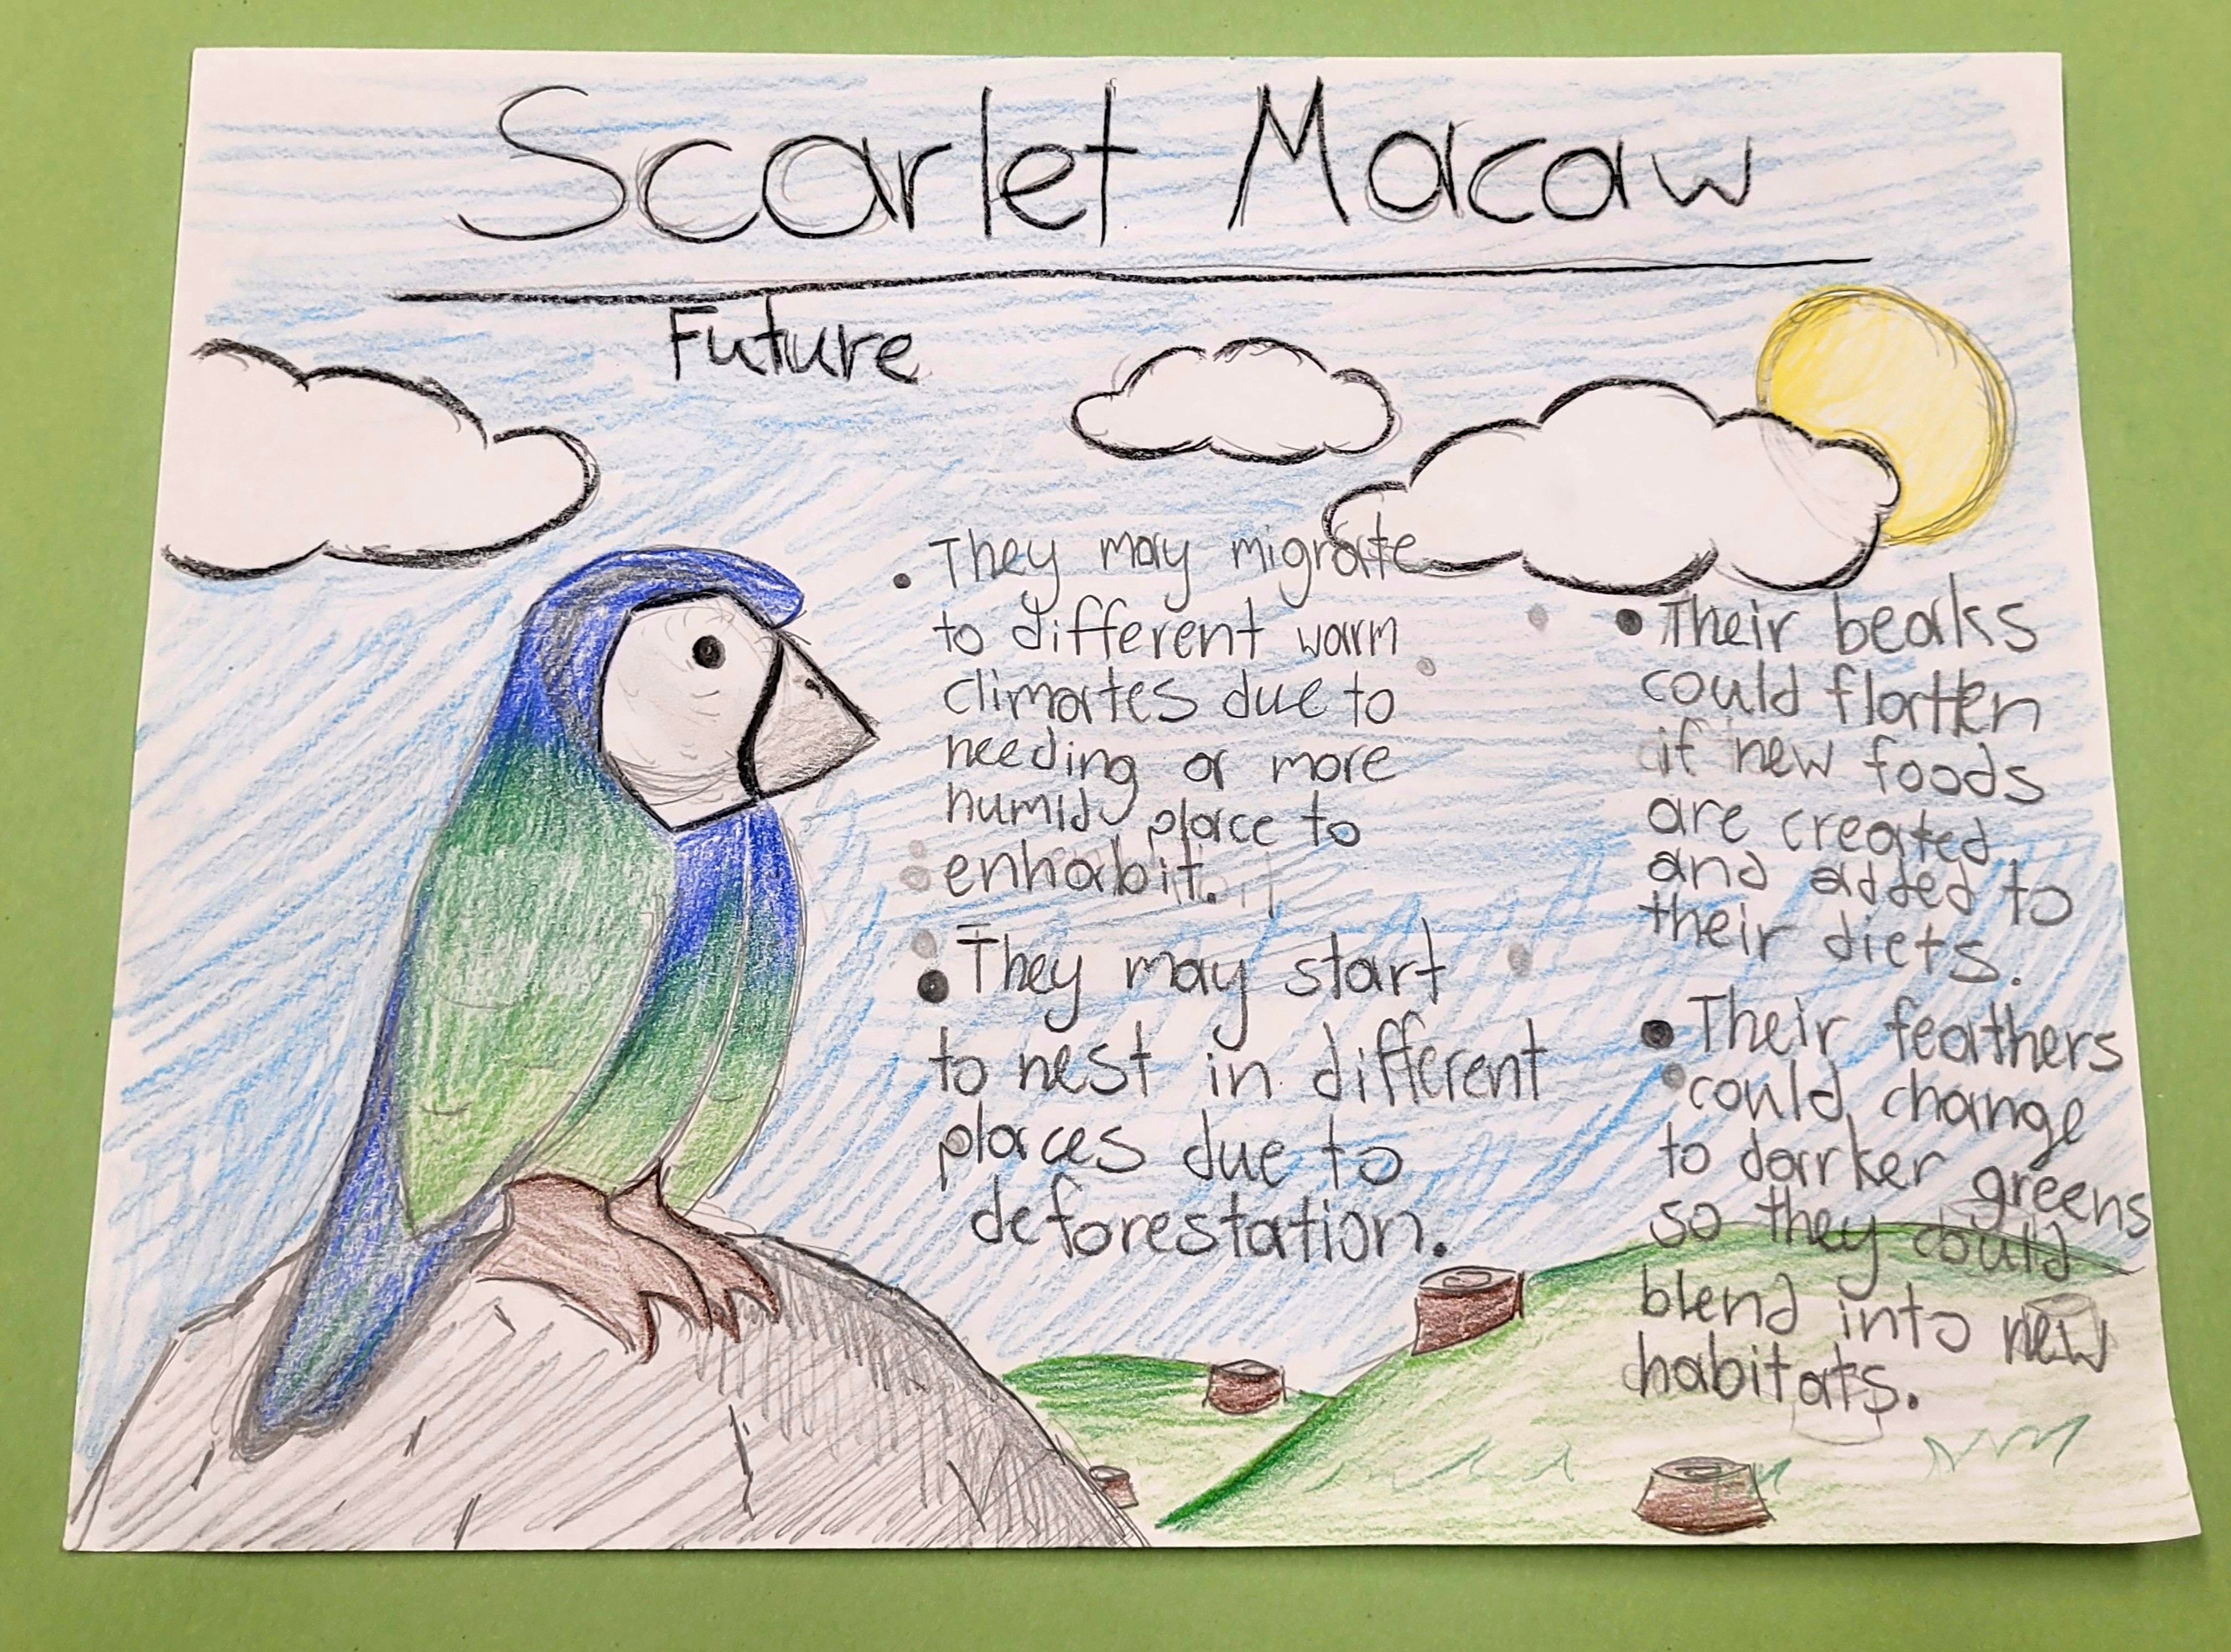 Scarlet Macaw
Future
• They may migrate
to different warm
climates due to
needing a more
humid place to
enhabit.
• They may start
to nest in different
places due to
deforestation.
• Their beaks
could flatten
if new foods
are created
and added to
their diets.
• Their feathers
could change
to darker greens
so they could
blend into new
habitats.